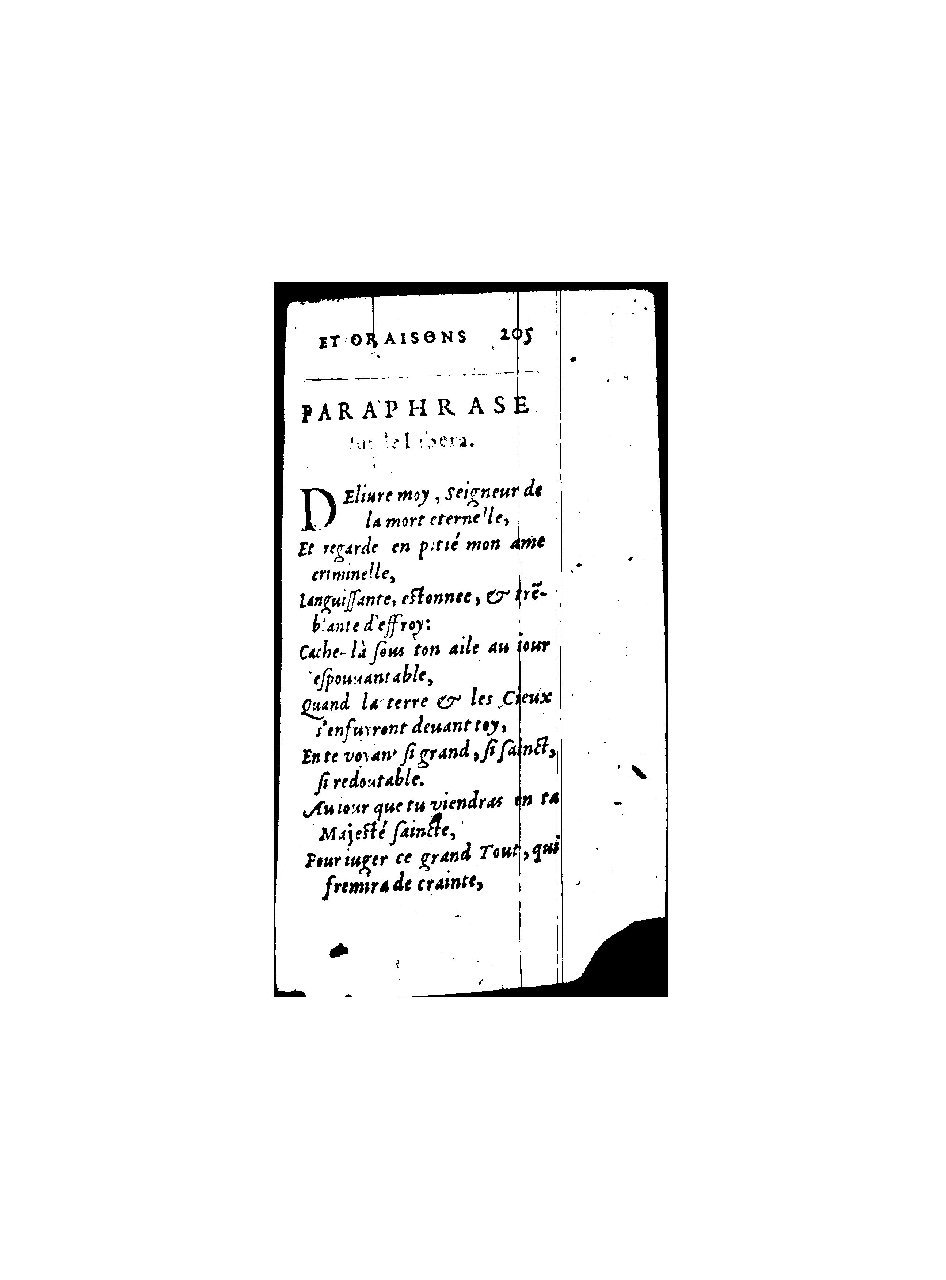 ET ORAISONS 205
PARAPHRASE
sur le Libera.
DEliure moy, Seigneur de
la mort eternelle,
Et regarde en pitié mon ame
criminelle,
Languiſſante, eſtonnee, & trẽ-
blante d'effroy:
Cache-là ſous ton aile au iour
eſpouuantable,
Quand la terre & les Cieux
s'enfuyront deuant toy,
En te voyant ſi grand, ſi ſainct,
ſi redoutable.
Au iour que tu viendras en ta
Majeſté ſaincte,
Pour iuger ce grand Tout, qui
fremira de crainte,